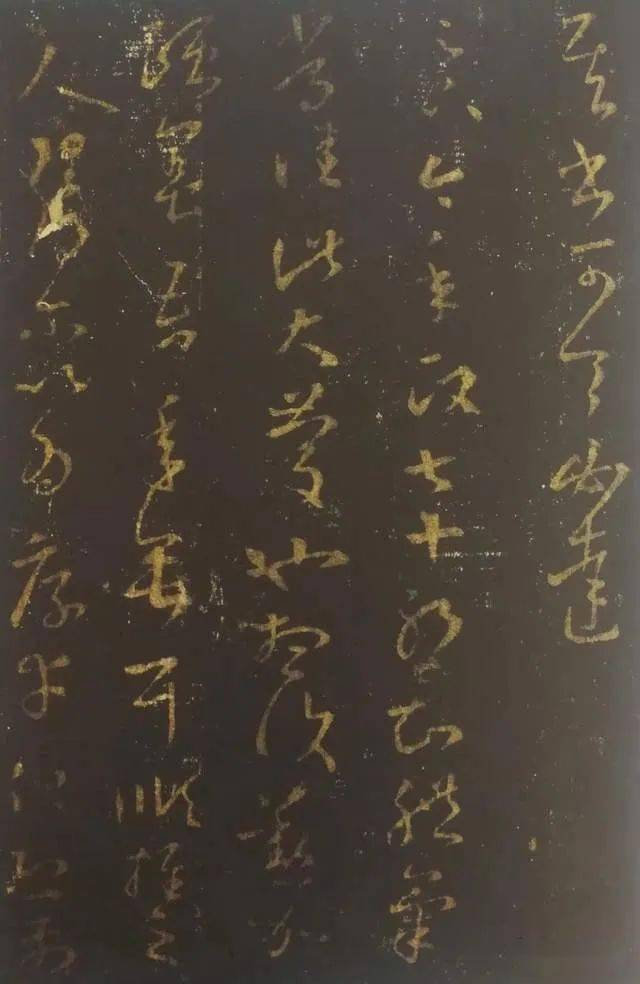 其書可令必達
足下今年政七十耶知體氣
常佳此大慶也想復懃加
頤養吾年垂耳順推之
人理得爾以為厚幸但恐前